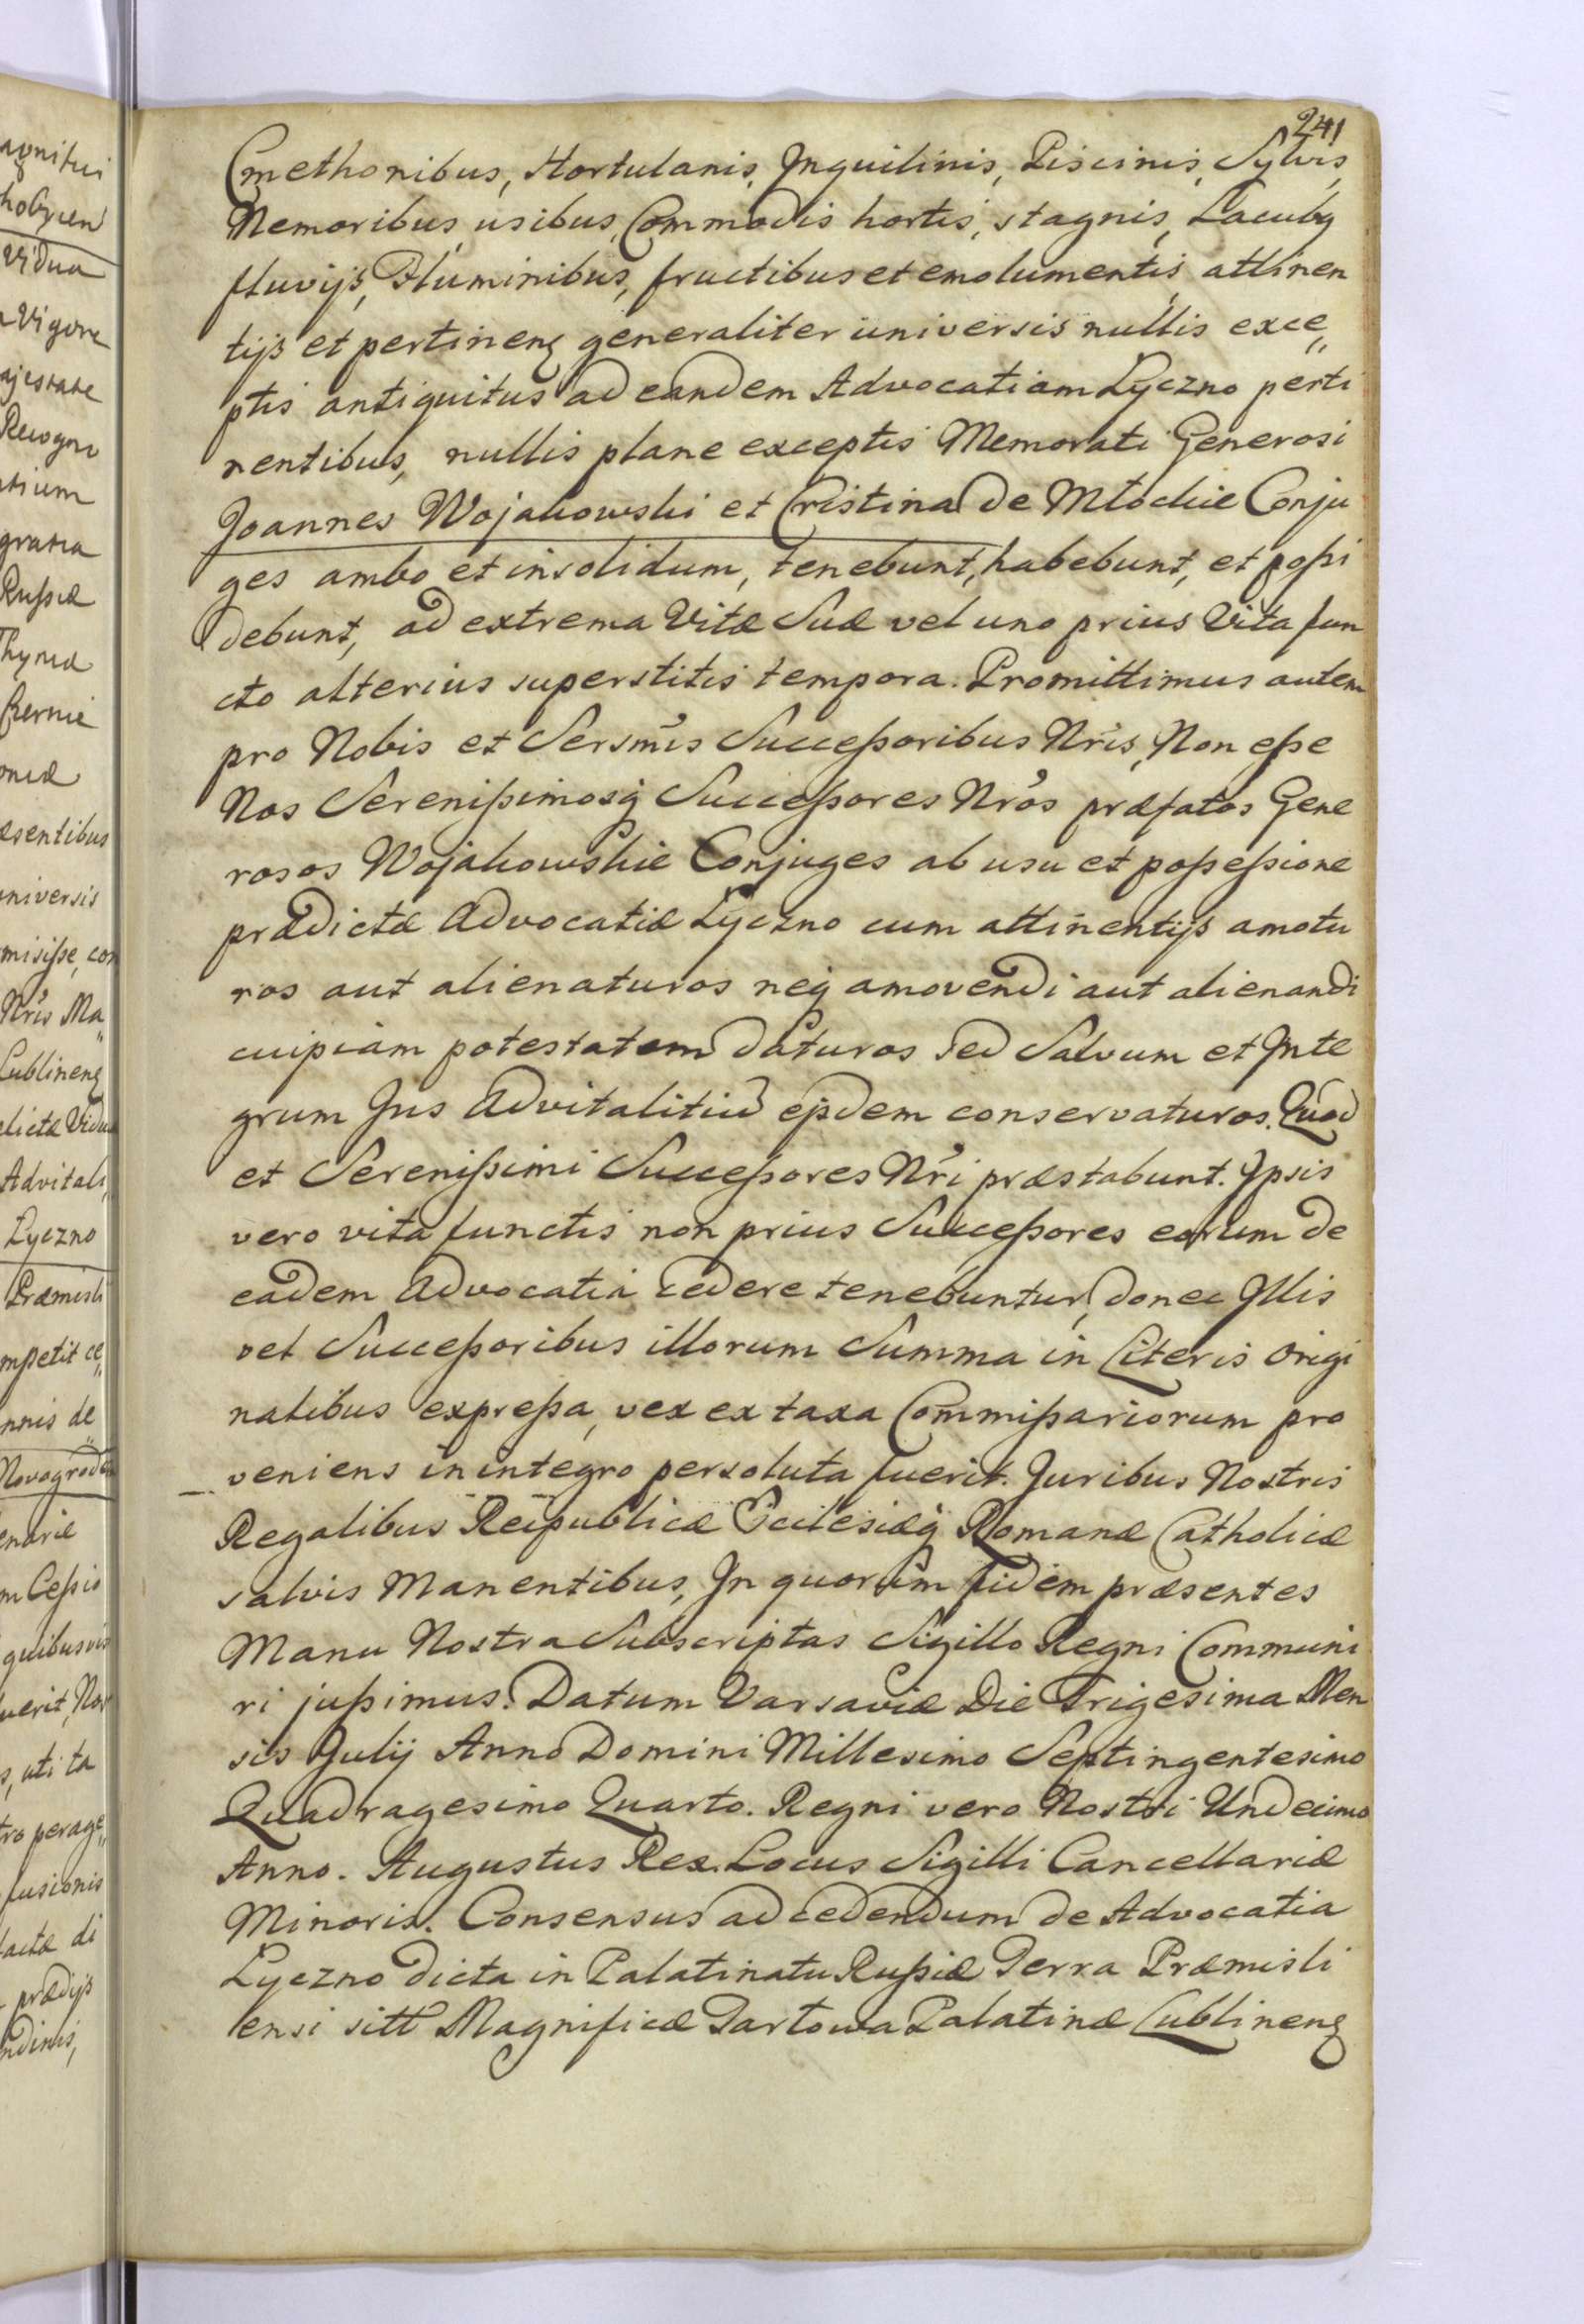 241
Cmethonibus, Hortulanis, Inquilinis, Piscinis, Sylvis,
Nemoribus, usibus, Commodis hortis, stagnis, Lacubq
fluvijs, Fluminibus, fructibus et emolumentis, attinen
tijs et pertinenq generaliter universis nullis exce„
ptis antiquitus ad eandem Advocatiam Lyczno perti
nentibus, nullis plane exceptis Memorati Generosi
Joannes Wojakowski et Cristina de Młockie Conju
ges ambo et insolidum, tenebunt, habebunt, et poßi
debunt, ad extrema Vitæ Suæ vel uno prius Vita fun
cto alterius superstitis tempora. Promittimus autem
pro Nobis et Sersmis Succeßoribus Nris, Non eße
Nos Serenißimosq Succeßores Nros præfatos Gene
rosos Wojakowskie Conjuges ab usu et poßeßione
prædictæ Advocatiæ Lyczno cum attinentijs amotu
ros aut alienaturos neq amovendi aut alienandi
cuipiam potestatem daturos sed Salvum et Inte
grum Jus Advitalitiu ejsdem conservaturos. Quod
et Serenißimi Succeßores Nri præstabunt. Ipsis
vero vita functis non prius Succeßores eorum de
eadem Advocatia cedere tenebuntur, donec Illis
vel Succeßoribus illorum Summa in Literis Origi
nalibus expreßa, vex ex taxa Commißariorum pro
veniens in integro persoluta fuerit. Juribus Nostris
Regalibus Reipublicæ Ecclesiæq Romanæ Catholicæ
salvis Manentibus, In quorum fidem præsentes
Manu Nostra Subscriptas Sigillo Regni Communi
ri jußimus. Datum Varsaviæ Die Trigesima Men
sis Julij Anno Domini Millesimo Septingentesimo
Quadragesimo Quarto. Regni vero Nostri Undecimo
Anno. Augustus Rex. Locus Sigilli Cancellariæ
Minoris. Consensus ad cedendum de Advocatia
Lyczno dicta in Palatinatu Rußiæ Terra Præmisli
ensi sitt Magnificæ Tartowa Palatinæ Lublinenq